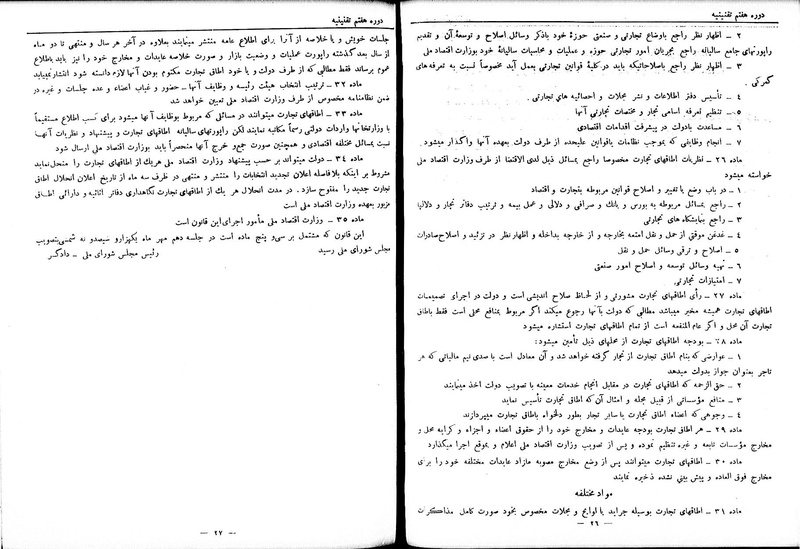 دوره هفتم تقنینیه
۲ ـ اظهار نظر راجع باوضاع تجارتی و صنعتی حوزهٔ خود باذکر وسائل اصلاح و توسعهٔ آن و تقدیم
راپورتهای جامع سالیانه راجع بجریان امور تجارتی حوزه و عملیات و محاسبات سالیانهٔ خود بوزارت اقتصاد ملی
۳ ـ اظهار نظر راجع باصلاحاتیکه باید در کلیهٔ قوانین تجارتی بعمل آید مخصوصاً نسبت به تعرفه‌های
گمرکی .
۴ ـ تأسیس دفتر اطلاعات و نشر مجلات و احصائیه های تجارتی .
۵ ـ تنظیم تعرفه اسامی تجار و مختصات تجارتی آنها
۶ ـ مساعدت بادولت در پیشرفت اقدامات اقتصادی
۷ ـ انجام وظایفی که بموجب نظامات یاقوانین علیحده از طرف دولت بعهده آنها واگذار میشود .
ماده ۲۶ ـ نظریات اطاقهای تجارت مخصوصا راجع بمسائل ذیل لدی الاقتضا از طرف وزارت اقتصاد ملی
خواسته میشود
۱ ـ در باب وضع یا تغییر و اصلاح قوانین مربوطه بتجارت و اقتصاد
۲ ـ راجع بمسائل مربوطه به بورس و بانك و صرافی و دلالی و عمل بیمه و ترتیب دفاتر تجار و دلالها
۳ ـ راجع بنمایشگاه های تجارتی
۴ ـ غدغن موقتی از حمل و نقل امتعه بخارجه و از خارجه بداخله و اظهار نظر در تزئید و اصلاح صادرات
۵ ـ اصلاح و ترقی وسائل حمل و نقل
۶ ـ تهیه وسائل توسعه و اصلاح امور صنعتی
۷ ـ امتیازات تجارتی
ماده ۲۷ ـ رأی اطاقهای تجارت مشورتی و از لحاظ صلاح اندیشی است و دولت در اجرای تصمیمات
اطاقهای تجارت همیشه مخیر میباشد مطالبی که دولت بآنها رجوع میکند اگر مربوط بمنافع محلی است فقط باطاق
تجارت آن محل و اگر عام المنفعه است از تمام اطاقهای تجارت استشاره میشود
ماده ۲۸ ـ بودجه اطاقهای تجارت از محلهای ذیل تأمین میشود:
۱ ـ عوارضی که بنام اطاق تجارت از تجار گرفته خواهد شد و آن معادل است با صدی نیم مالیاتی که هر
تاجر بعنوان جواز بدولت میدهد
۲ ـ حق الزحمه که اطاقهای تجارت در مقابل انجام خدمات معینه با تصویب دولت اخذ مینمایند
۳ ـ منافع مؤسساتی از قبیل مجله و امثال آن که اطاق تجارت تأسیس نماید
۴ ـ وجوهی که اعضاء اطاق تجارت یا سایر تجار بطور دلخواه باطاق تجارت میپردازند
ماده ۲۹ ـ هر اطاق تجارت بودجه عایدات و مخارج خود را از حقوق اعضاء و اجزاء و کرایه محل و
مخارج مؤسسات تابعه و غیره تنظیم نموده و پس از تصویب وزارت اقتصاد ملی اعلام و بموقع اجرا میگذارد
ماده ۳۰ ـ اطاقهای تجارت میتوانند پس از وضع مخارج مصوبه مازاد عایدات مختلفه خود را برای
مخارج فوق العاده و پیش بینی نشده ذخیره نمایند
مواد مختلفه
ماده ۳۱ ـ اطاقهای تجارت بوسیله جراید یا لوایح و مجلات مخصوص بخود صورت کامل مذاکرات
ـ ۲۶ ـ
دوره هفتم تقنینیه
جلسات خویش و یا خلاصه از آنرا برای اطلاع عامه منتشر مینمایند بعلاوه در آخر هر سال و منتهی تا دو ماه
از سال بعد گذشته راپورت عملیات و وضعیت بازار و صورت خلاصه عایدات و مخارج خود را نیز باید باطلاع
عموم برساند فقط مطالبی که از طرف دولت و یا خود اطاق تجارت مکتوم بودن آنها لازم دانسته شود انتشار نمییابد
ماده ۳۲ ـ ترتیب انتخاب هیئت رئیسه و وظایف آنها ـ حضور و غیاب اعضاء و عده جلسات و غیره در
ضمن نظامنامه مخصوص از طرف وزارت اقتصاد ملی تعیین خواهد شد
ماده ۳۳ ـ اطاقهای تجارت میتوانند در مسائلی که مربوط بوظایف آنها میشود برای کسب اطلاع مستقیماً
با وزارتخانها وادارات دولتی رسماً مکاتبه نمایند لکن راپورتهای سالیانه اطاقهای تجارت و پیشنهاد و نظریات آنها
نسبت بمسائل مختلفه اقتصادی و همچنین صورت جمع و خرج آنها منحصراً باید بوزارت اقتصاد ملی ارسال شود
ماده ۳۴ ـ دولت میتواند بر حسب پیشنهاد وزارت اقتصاد ملی هریك از اطاقهای تجارت را منحل نماید
مشروط بر اینکه بلافاصله اعلان تجدید انتخابات را منتشر و منتهی در ظرف سه ماه از تاریخ اعلان انحلال اطاق
تجارت جدید را مفتوح سازد . در مدت انحلال هر یك از اطاقهای تجارت نگاهداری دفاتر اثاثیه و دارائی اطاق
مزبور بعهده وزارت اقتصاد ملی است
ماده ۳۵ ـ وزارت اقتصاد ملی مأمور اجرای این قانون است
این قانون که مشتمل بر سی و پنج ماده است در جلسه دهم مهر ماه یکهزارو سیصدو نه شمسی بتصویب
مجلس شورای ملی رسید رئیس مجلس شورای ملی ـ دادگر
ـ ۲۷ ـ